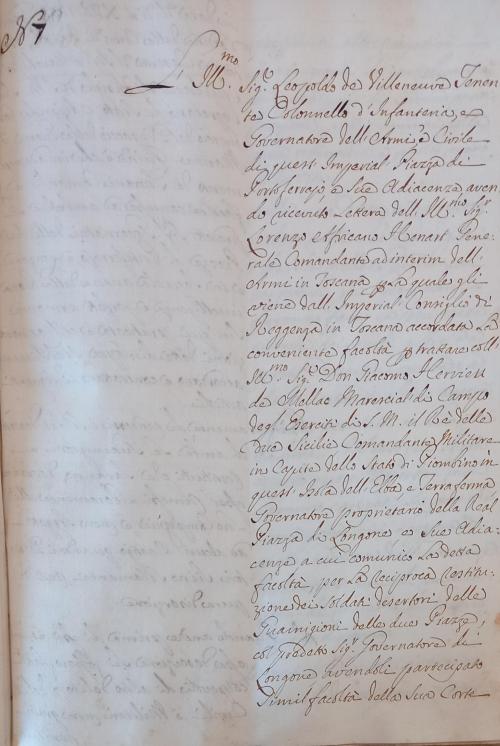 N 7
L' Ill.mo Sig.r Leopoldo de Villeneuve Tenen
te Colonnello d'Infanteria, e
Governatore dell'Armi, e Civile
di quest' Imperial Piazza di
Portoferrajo, e Sue Adiacenze aven
do ricevuto Lettera dell' Ill.mo Sig.r
Lorenzo Affricano Henart Gene-
rale Comandante ad interim dell'
Armi in Toscana La quale gli
viene dall' Imperial Consiglio di
Reggenza in Toscana accordata La
conveniente facoltà trattare coll'
Ill.mo Sig.r Don Giacomo Hervieu
de Mellac Marescial di Campo
degl' Eserciti di S. M. il Re delle
Due Sicilie Comandante Militare
in Capite dello Stato di Piombino in
quest' Isola dell' Elba e Terraferma
Governatore proprietario della Real
Piazza di Longone e Sue Adia-
cenze a cui comunicò La detta
facoltà per La reciproca restitu-
zione dei Soldati desertori delle
Guainigioni delle due Piazze,
col prodetto Sig.r Governatore di
Longone avendoli partecipato
Simil facoltà della Sua Corte